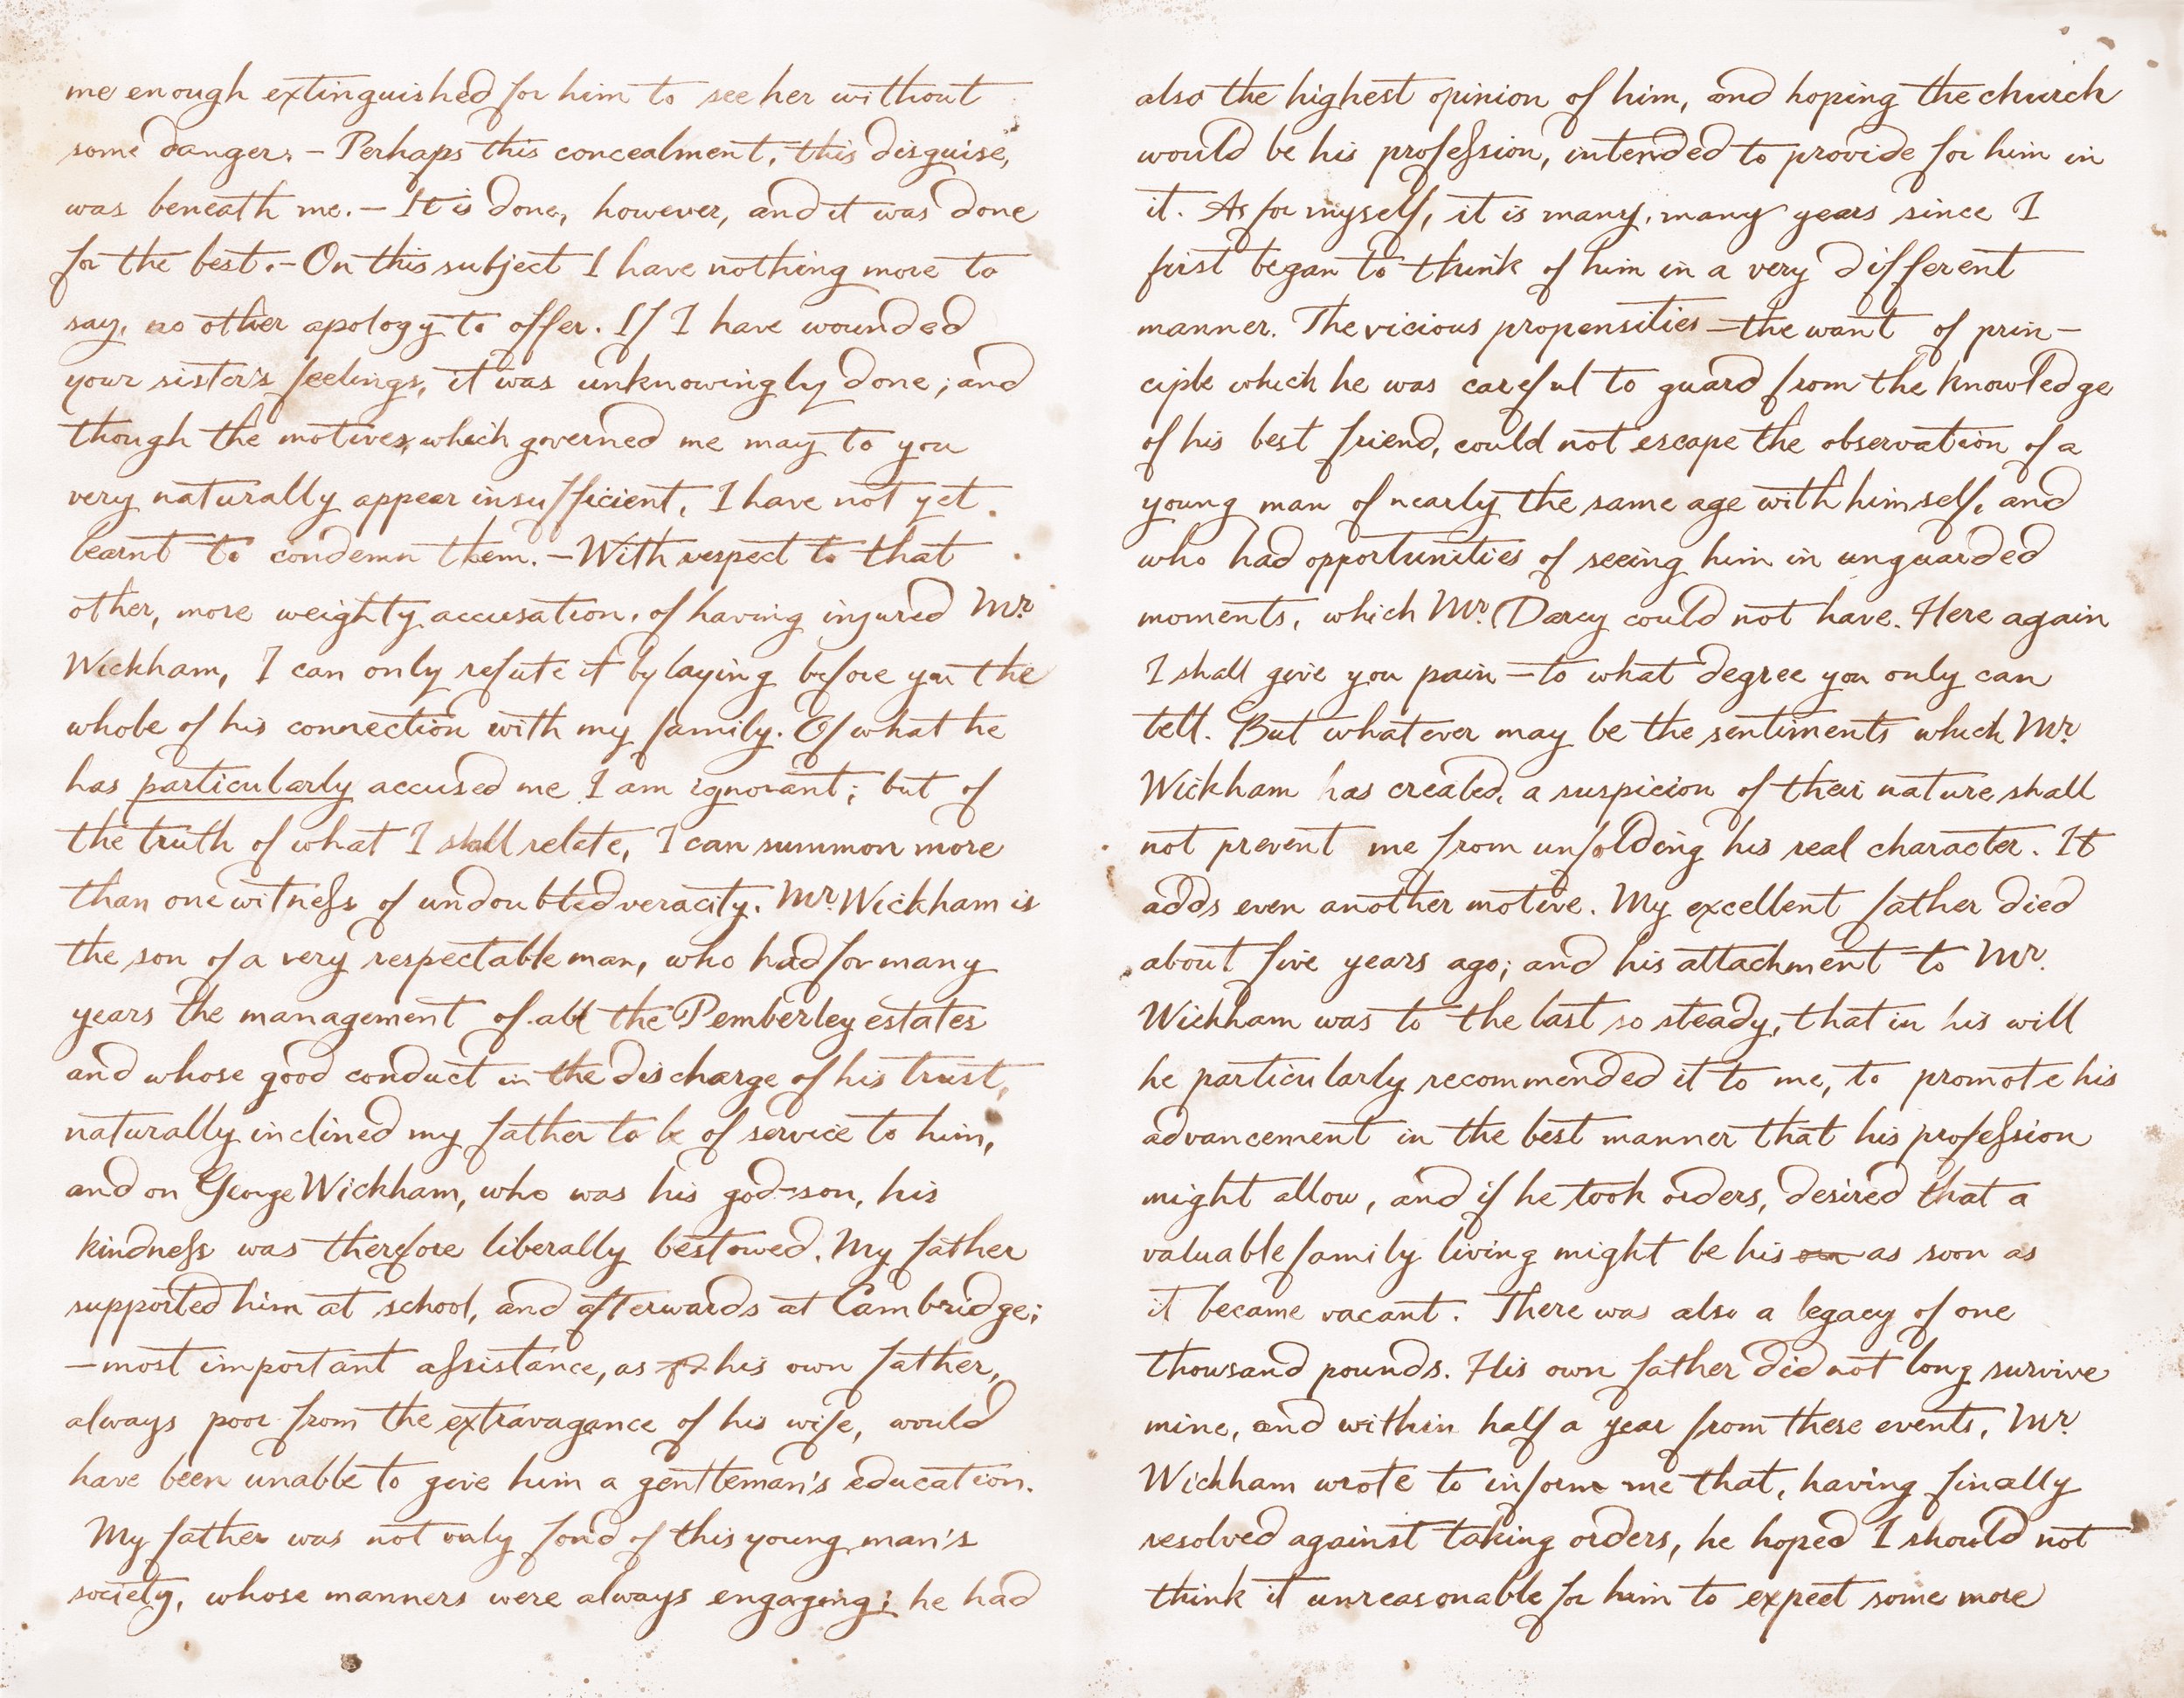 me enough extinguished for him to see her without
some danger. – Perhaps this concealment, this disguise,
was beneath me. – It is done, however, and it was done
for the best. – On this subject I have nothing more to
say, no other apology to offer. If I have wounded
your sister's feelings, it was unknowingly done; and
though the motives which governed me may to you
very naturally appear insufficient, I have not yet
learnt to condemn them. – With respect to that
other, more weighty accusation, of having injured Mr.
Wickham, I can only refute it by laying before you the
whole of his connection with my family. Of what he
has particularly accused me I am ignorant; but of
the truth of what I shall relate, I can summon more
than one witneſs of undoubted veracity. Mr. Wickham is
the son of a very respectable man, who had for many
years the management of all the Pemberley estates
and whose good conduct in the discharge of his trust,
naturally inclined my father to be of service to him,
and on George Wickham, who was his god-son, his
kindneſs was therefore liberally bestowed. My father
supported him at school, and afterwards at Cambridge;
– most important aſsistance, as his own father,
always poor from the extravagance of his wife, would
have been unable to give him a gentleman's education.
My father was not only fond of this young man's
society, whose manners were always engaging; he had
also the highest opinion of him, and hoping the church
would be his profeſsion, intended to provide for him in
it. As for myself, it is many, many years since I
first began to think of him in a very different
manner. The vicious propensities – the want of prin–
ciple which he was careful to guard from the knowledge
of his best friend, could not escape the observation of a
young man of nearly the same age with himself, and
who had opportunities of seeing him in unguarded
moments, which Mr. Darcy could not have. Here again
I shall give you pain – to what degree you only can
tell. But whatever may be the sentiments which Mr.
Wickham has created, a suspicion of their nature shall
not prevent me from unfolding his real character. It
adds even another motive. My excellent father died
about five years ago; and his attachment to Mr.
Wickham was to the last so steady, that in his will
he particularly recommended it to me, to promote his
advancement in the best manner that his profeſsion
might allow, and if he took orders, desired that a
valuable family living might be his as soon as
it became vacant. There was also a legacy of one
thousand pounds. His own father did not long survive
mine, and within half a year from these events, Mr.
Wickham wrote to inform me that, having finally
resolved against taking orders, he hoped I should not
think it unreasonable for him to expect some more